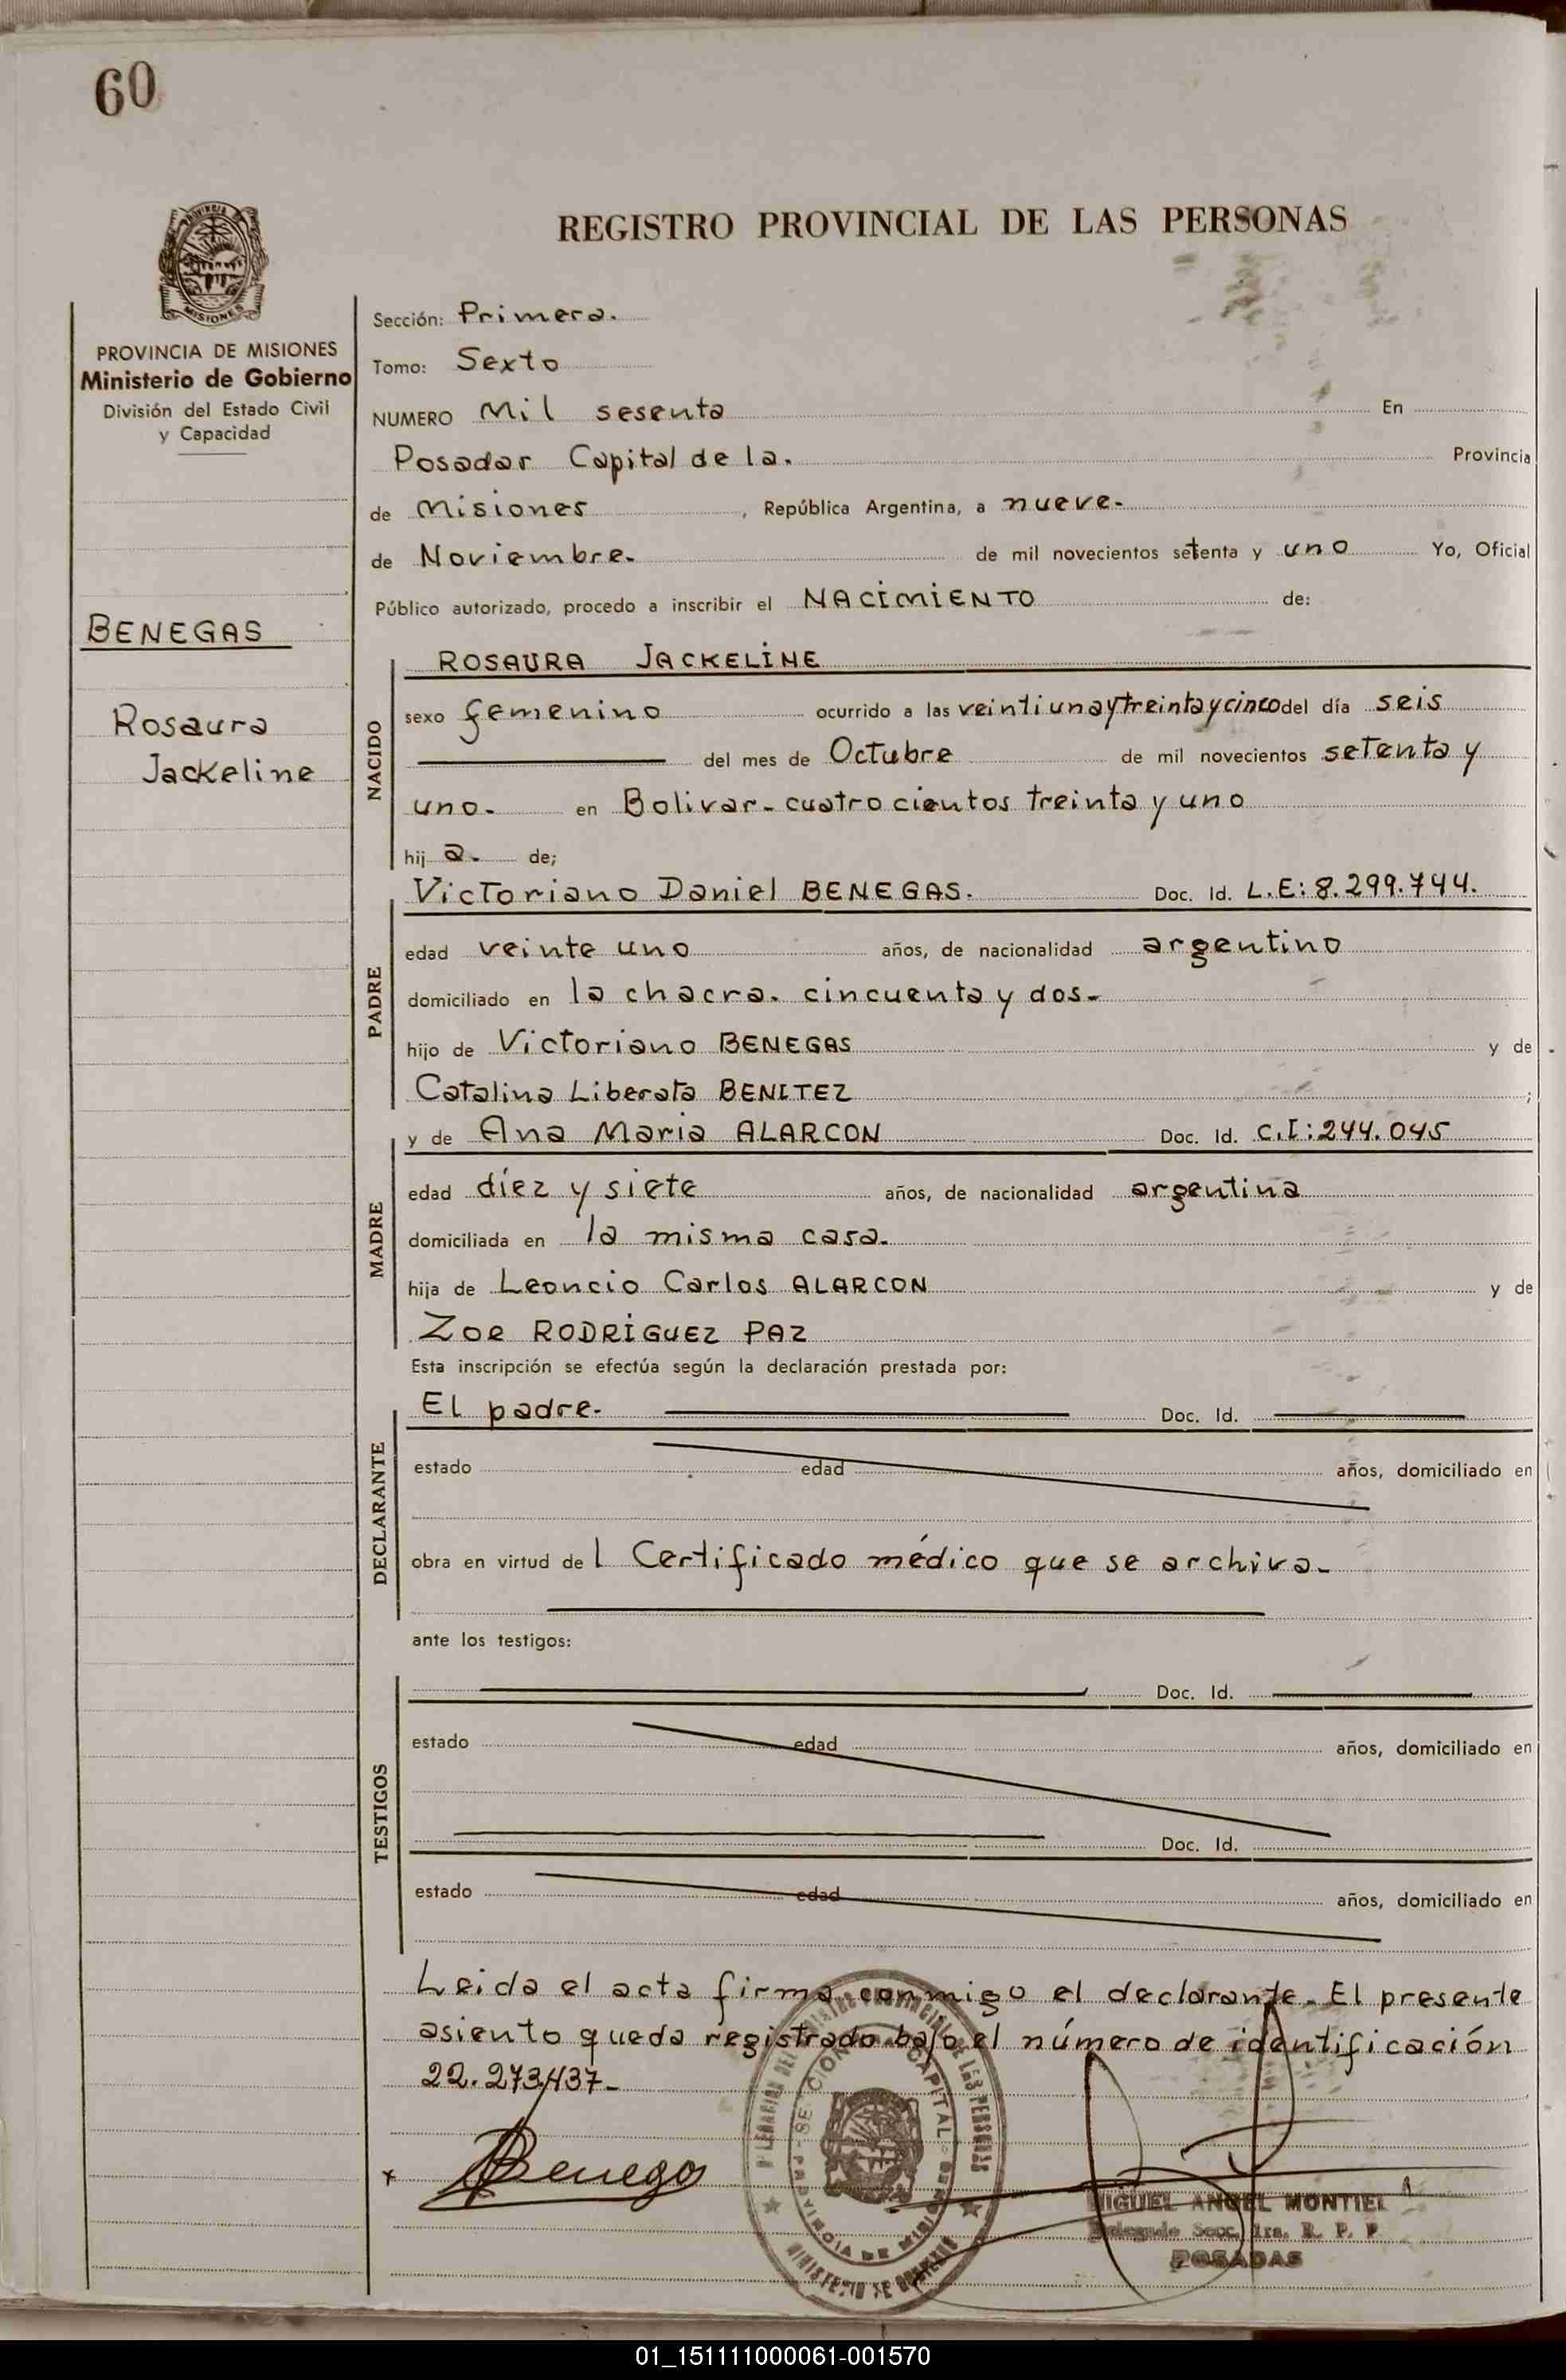 60
REGISTRO PROVINCIAL DE LAS PERSONAS
PROVINCIA DE MISIONES
Ministerio de Gobierno
División del Estado Civil
y Capacidad
BENEGAS
Rosaura
Jackeline
Sección: Primera.
Tomo: Sexto
NUMERO Mil sesenta En
Posadas Capital de la. Provincia
de Misiones, República Argentina, a nueve-
de Noviembre- de mil novecientos setenta y uno Yo, Oficial
Público autorizado, procedo a inscribir el NACIMIENTO de:
NACIDO
ROSAURA JACKELINE
sexo femenino ocurrido a las veintiuna y treinta y cinco del día seis
del mes de Octubre de mil novecientos setenta y
uno- en Bolivar- cuatrocientos treinta y uno
hij a. de;
PADRE
Victoriano Daniel BENEGAS. Doc. Id. L.E: 8.299.744.
edad veinte uno años, de nacionalidad argentino
domiciliado en la chacra. cincuenta y dos-
hijo de Victoriano BENEGAS y de
Catalina Liberata BENITEZ ;
MADRE
y de Ana Maria ALARCON Doc. Id. C.I: 244.045
edad diez y siete años, de nacionalidad argentina
domiciliada en la misma casa.
hija de Leoncio Carlos ALARCON y de
Zoe RODRIGUEZ PAZ
Esta inscripción se efectúa según la declaración prestada por:
DECLARANTE
El padre- Doc. Id.
estado edad años, domiciliado en
obra en virtud de l Certificado médico que se archiva-
ante los testigos:
TESTIGOS
Doc. Id.
estado edad años, domiciliado en
Doc. Id.
estado edad años, domiciliado en
Leida el acta firma conmigo el declarante. El presente
asiento queda registrado bajo el número de identificación
22.273.437-
x Benegas
MIGUEL ANGEL MONTIEL
Delegado Secc. 1ra. R. P. P
POSADAS
01_151111000061-001570